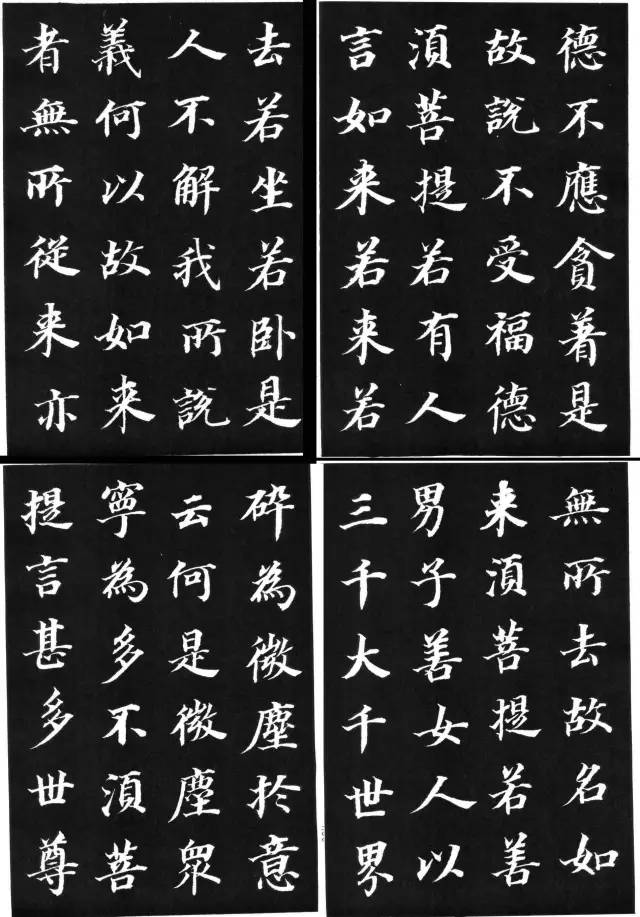 德不應貪著是
故說不受福德
須菩提若有人
言如来若来若
去若坐若卧是
人不解我所說
義何以故如来
者無所從来亦
無所去故名如
来須菩提若善
男子善女人以
三千大千世界
碎為微塵於意
云何是微塵眾
寧為多不須菩
提言甚多世尊